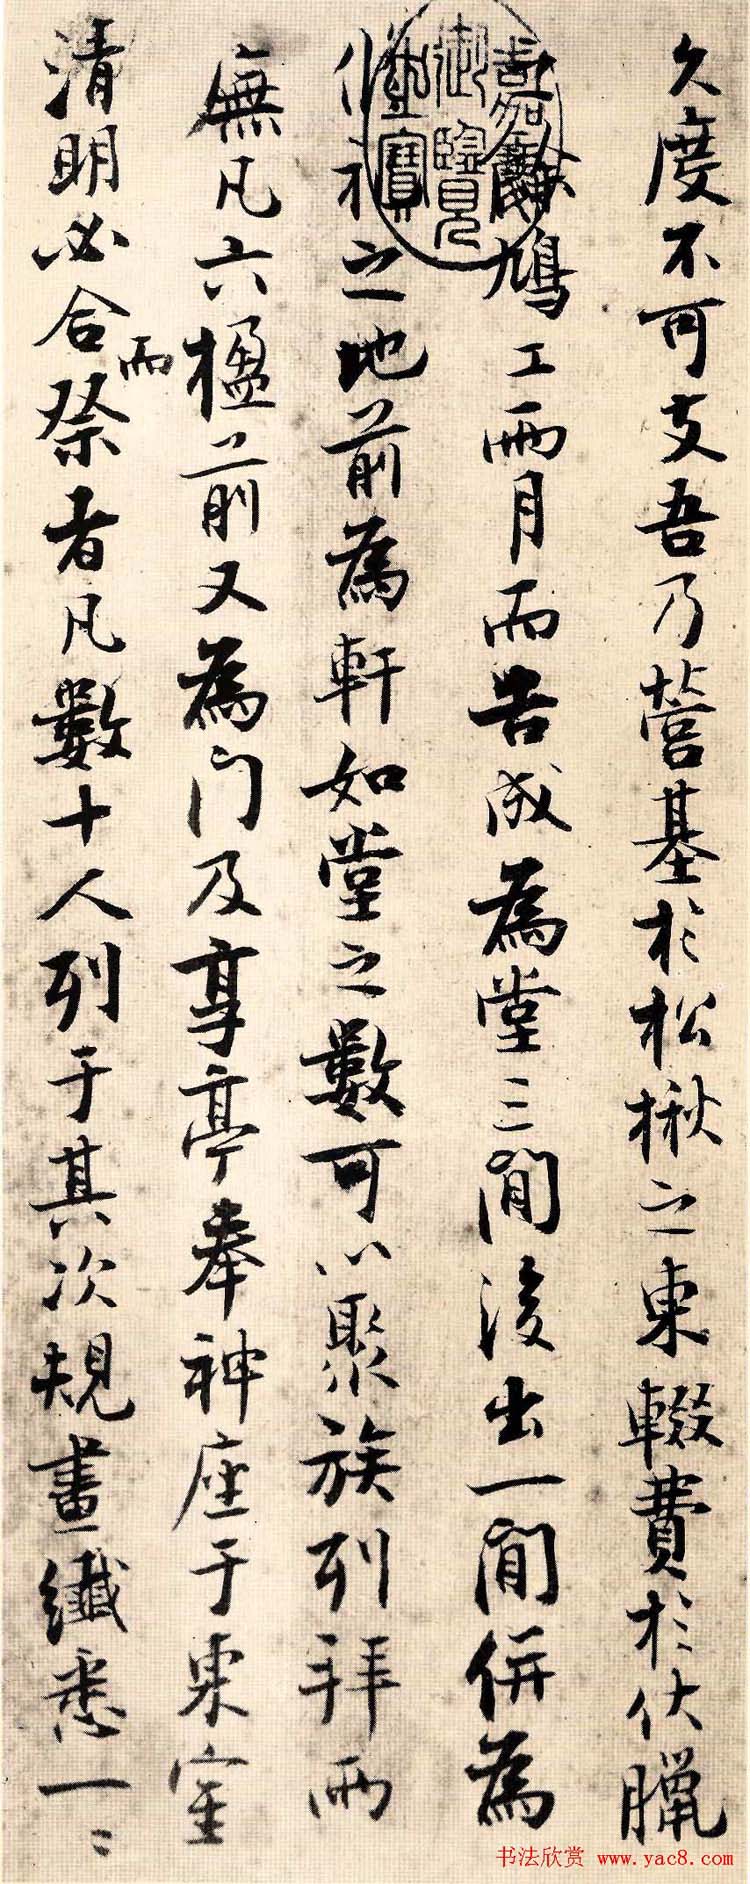 久度不可支吾乃營基於松楸之東輟費於伏臘
鳩工兩月而告成為堂三間後出一間併為
之地前為軒如堂之數可以聚族列拜兩
廡凡六楹前又為門及享亭奉神座于東室
而
清明必合祭者凡數十人列于其次規畫纖悉一〻
嘉慶御覽之寶
书法欣赏 www.yac8.com